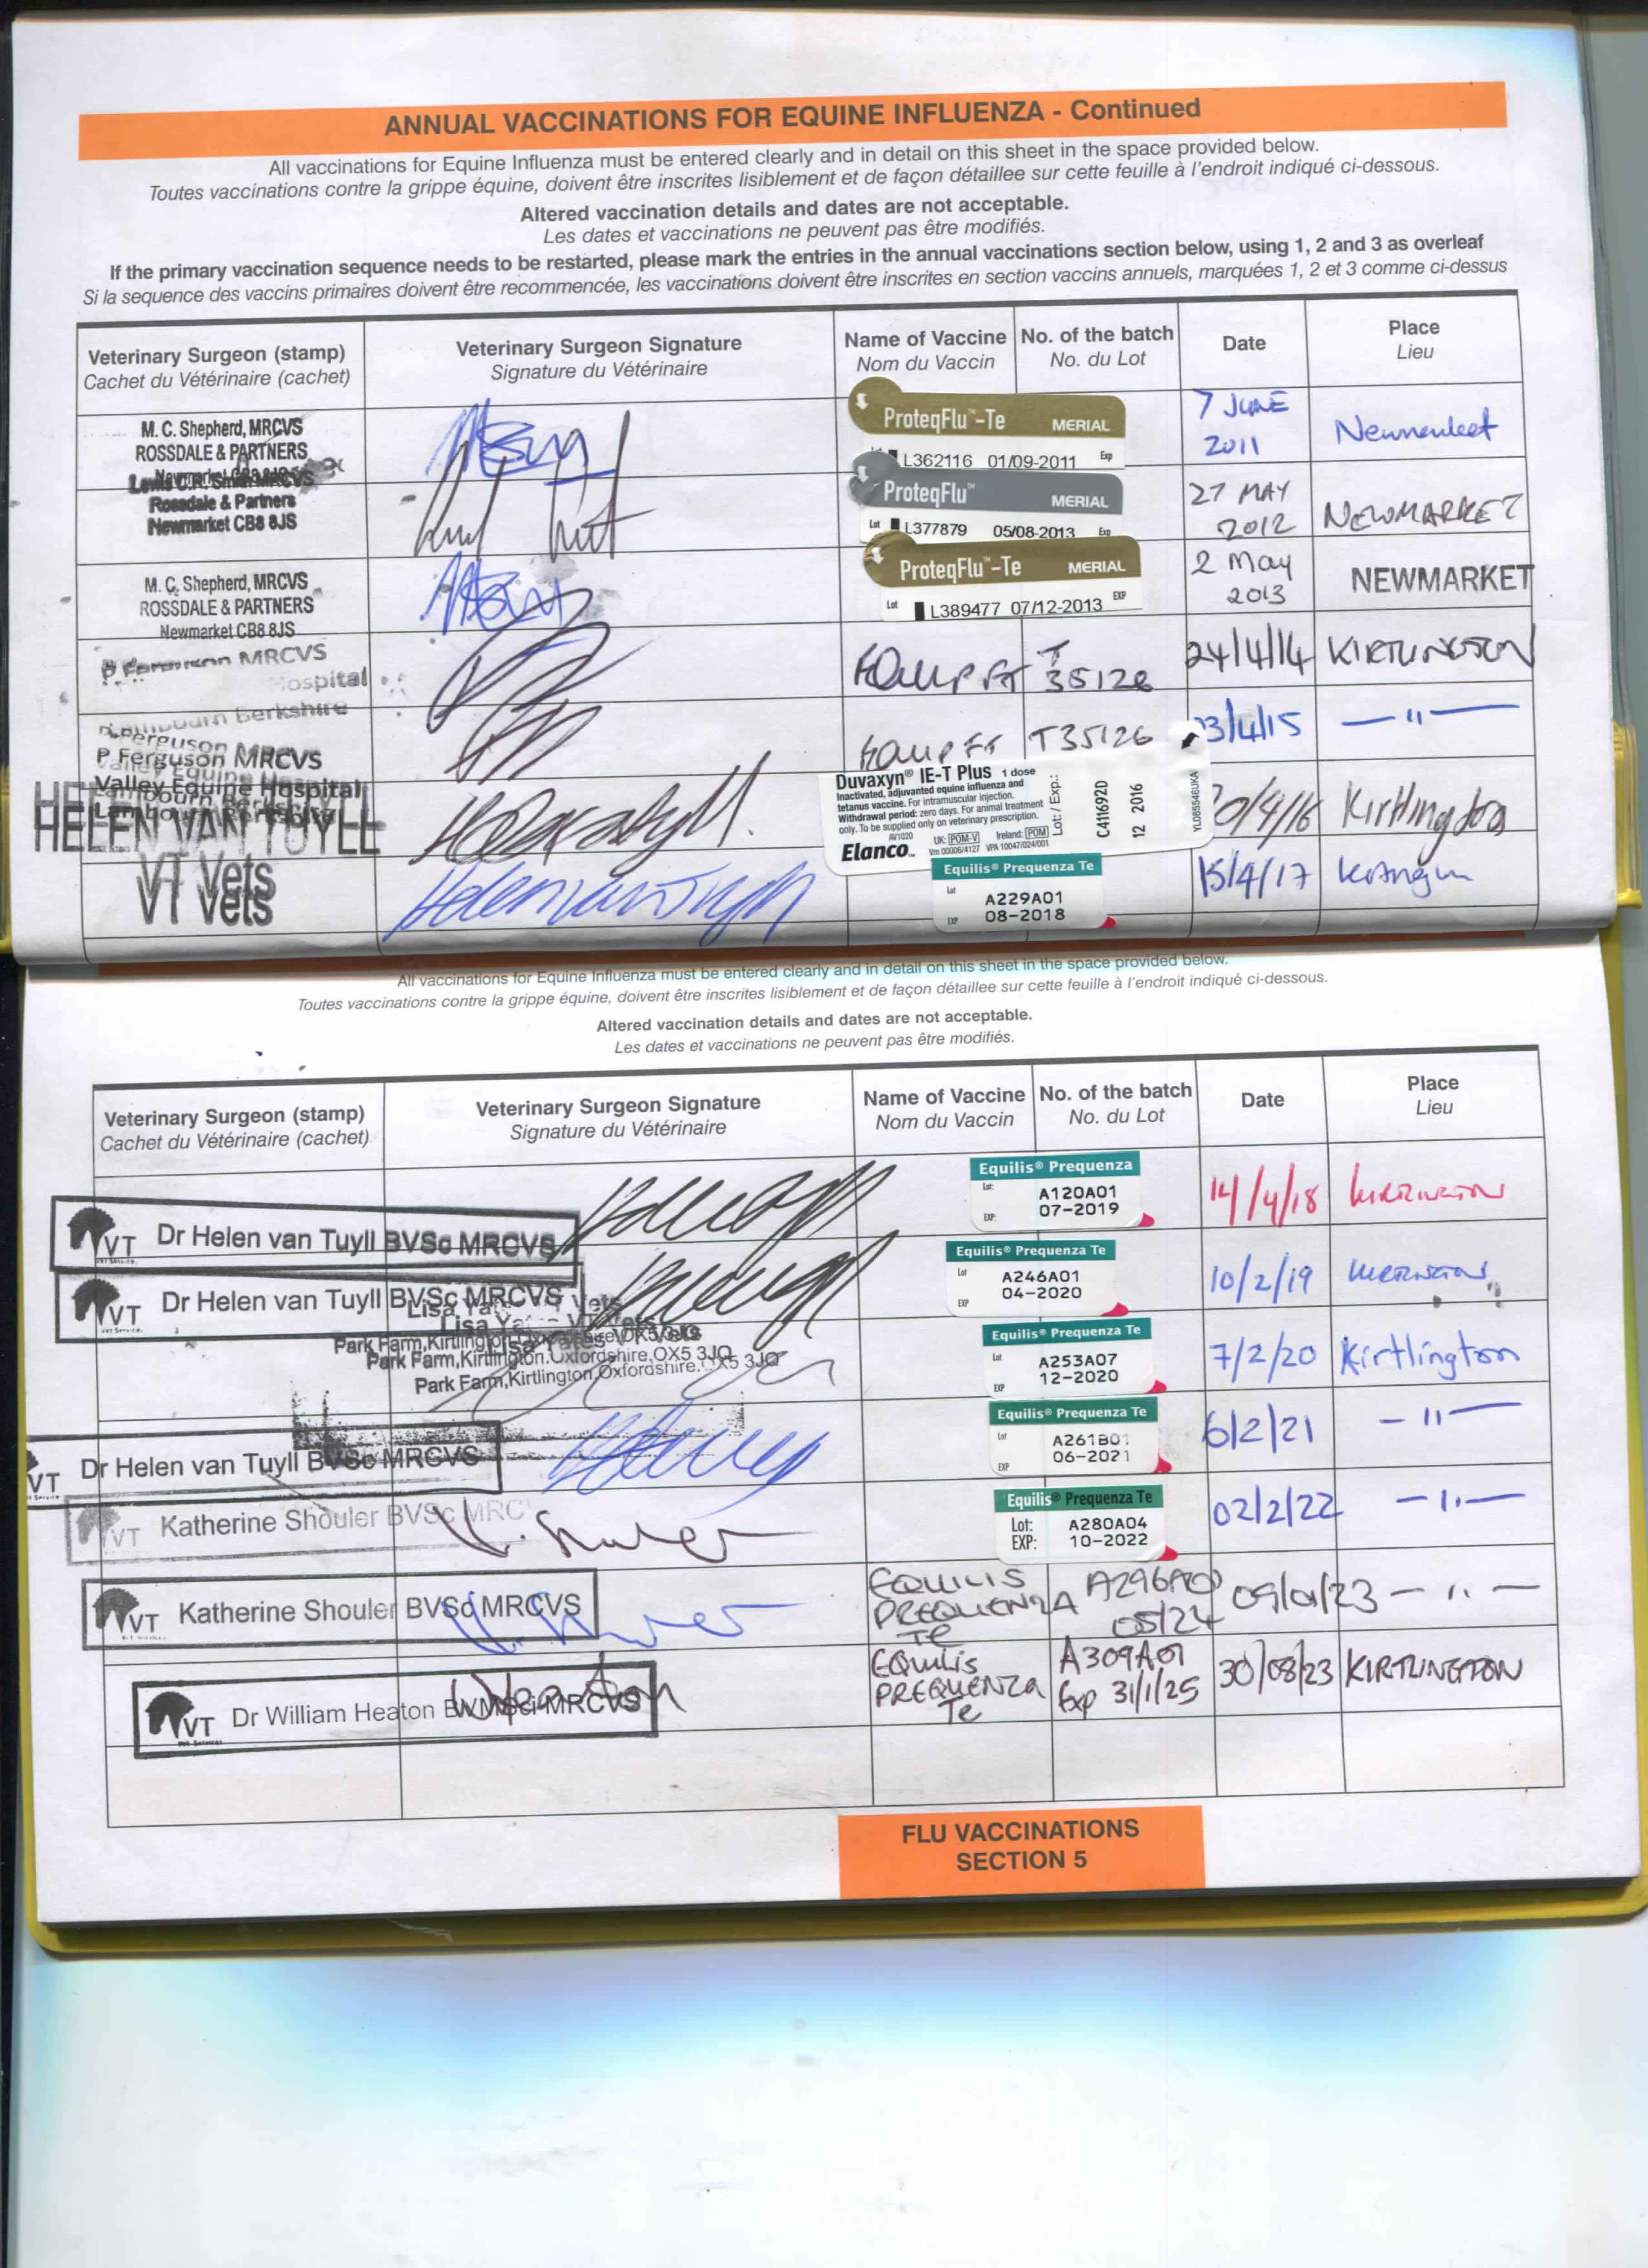 ANNUAL VACCINATIONS FOR EQUINE INFLUENZA - Continued
All vaccinations for Equine Influenza must be entered clearly and in detail on this sheet in the space provided below.
Toutes vaccinations contre la grippe équine, doivent être inscrites lisiblement et de façon détaillee sur cette feuille à l'endroit indiqué ci-dessous.
Altered vaccination details and dates are not acceptable.
Les dates et vaccinations ne peuvent pas être modifiés.
If the primary vaccination sequence needs to be restarted, please mark the entries in the annual vaccinations section below, using 1, 2 and 3 as overleaf
Si la sequence des vaccins primaires doivent être recommencée, les vaccinations doivent être inscrites en section vaccins annuels, marquées 1, 2 et 3 comme ci-dessus
Veterinary Surgeon (stamp) Veterinary Surgeon Signature Name of Vaccine No. of the batch Date Place
Cachet du Vétérinaire (cachet) Signature du Vétérinaire Nom du Vaccin No. du Lot Lieu
M. C. Shepherd, MRCVS
ROSSDALE & PARTNERS
Newmarket CB8 8JS
ProteqFlu™-Te MERIAL
L362116 01/09-2011 Exp
7 JUNE
2011
Rossdale & Partners
Newmarket CB8 8JS
ProteqFlu™ MERIAL
Lot L377879 05/08-2013 Exp
27 MAY
2012
NEWMARKET
M. C. Shepherd, MRCVS
ROSSDALE & PARTNERS
Newmarket CB8 8JS
ProteqFlu™-Te MERIAL
Lot L389477 07/12-2013 EXP
2 May
2013
NEWMARKET
MRCVS
Hospital
Berkshire
T
35126
24/4/14 KIRTLINGTON
P Ferguson MRCVS
Valley Equine Hospital
Lambourn Berkshire
T35126
3/4/15 — " —
HELEN VAN TUYLL
Duvaxyn® IE-T Plus 1 dose
Inactivated, adjuvanted equine influenza and
tetanus vaccine. For intramuscular injection.
Withdrawal period: zero days. For animal treatment
only. To be supplied only on veterinary prescription.
AV1020 UK: POM-V Ireland: POM
Elanco Vm 00006/4127 VPA 10047/024/001
Lot / Exp.:
C411692D
12 2016
YL085546UKA
0/4/16 Kirtlington
VT Vets
Equilis® Prequenza Te
Lot A229A01
EXP 08-2018
15/4/17
All vaccinations for Equine Influenza must be entered clearly and in detail on this sheet in the space provided below.
Toutes vaccinations contre la grippe équine, doivent être inscrites lisiblement et de façon détaillee sur cette feuille à l'endroit indiqué ci-dessous.
Altered vaccination details and dates are not acceptable.
Les dates et vaccinations ne peuvent pas être modifiés.
Veterinary Surgeon (stamp) Veterinary Surgeon Signature Name of Vaccine No. of the batch Date Place
Cachet du Vétérinaire (cachet) Signature du Vétérinaire Nom du Vaccin No. du Lot Lieu
VT Dr Helen van Tuyll BVSc MRCVS
Equilis® Prequenza
Lot: A120A01
EXP: 07-2019
14/4/18
VT Dr Helen van Tuyll BVSc MRCVS
Equilis® Prequenza Te
Lot A246A01
EXP 04-2020
10/2/19
Park Farm, Kirtlington, Oxfordshire, OX5 3JQ
Park Farm, Kirtlington, Oxfordshire, OX5 3JQ
Park Farm, Kirtlington, Oxfordshire, OX5 3JQ
Equilis® Prequenza Te
Lot A253A07
EXP 12-2020
7/2/20 Kirtlington
VT Dr Helen van Tuyll BVSc MRCVS
Equilis® Prequenza Te
Lot A261B01
EXP 06-2021
6/2/21 — " —
VT Katherine Shouler BVSc MRC
Equilis® Prequenza Te
Lot: A280A04
EXP: 10-2022
02/2/22 — " —
VT Katherine Shouler BVSc MRCVS
EQUILIS
PREQUENZA
Te
05/24
09/01/23 — " —
VT Dr William Heaton BVMSci MRCVS
EQUILIS
PREQUENZA
Te
A309A01
Exp 31/1/25
30/08/23 KIRTLINGTON
FLU VACCINATIONS
SECTION 5